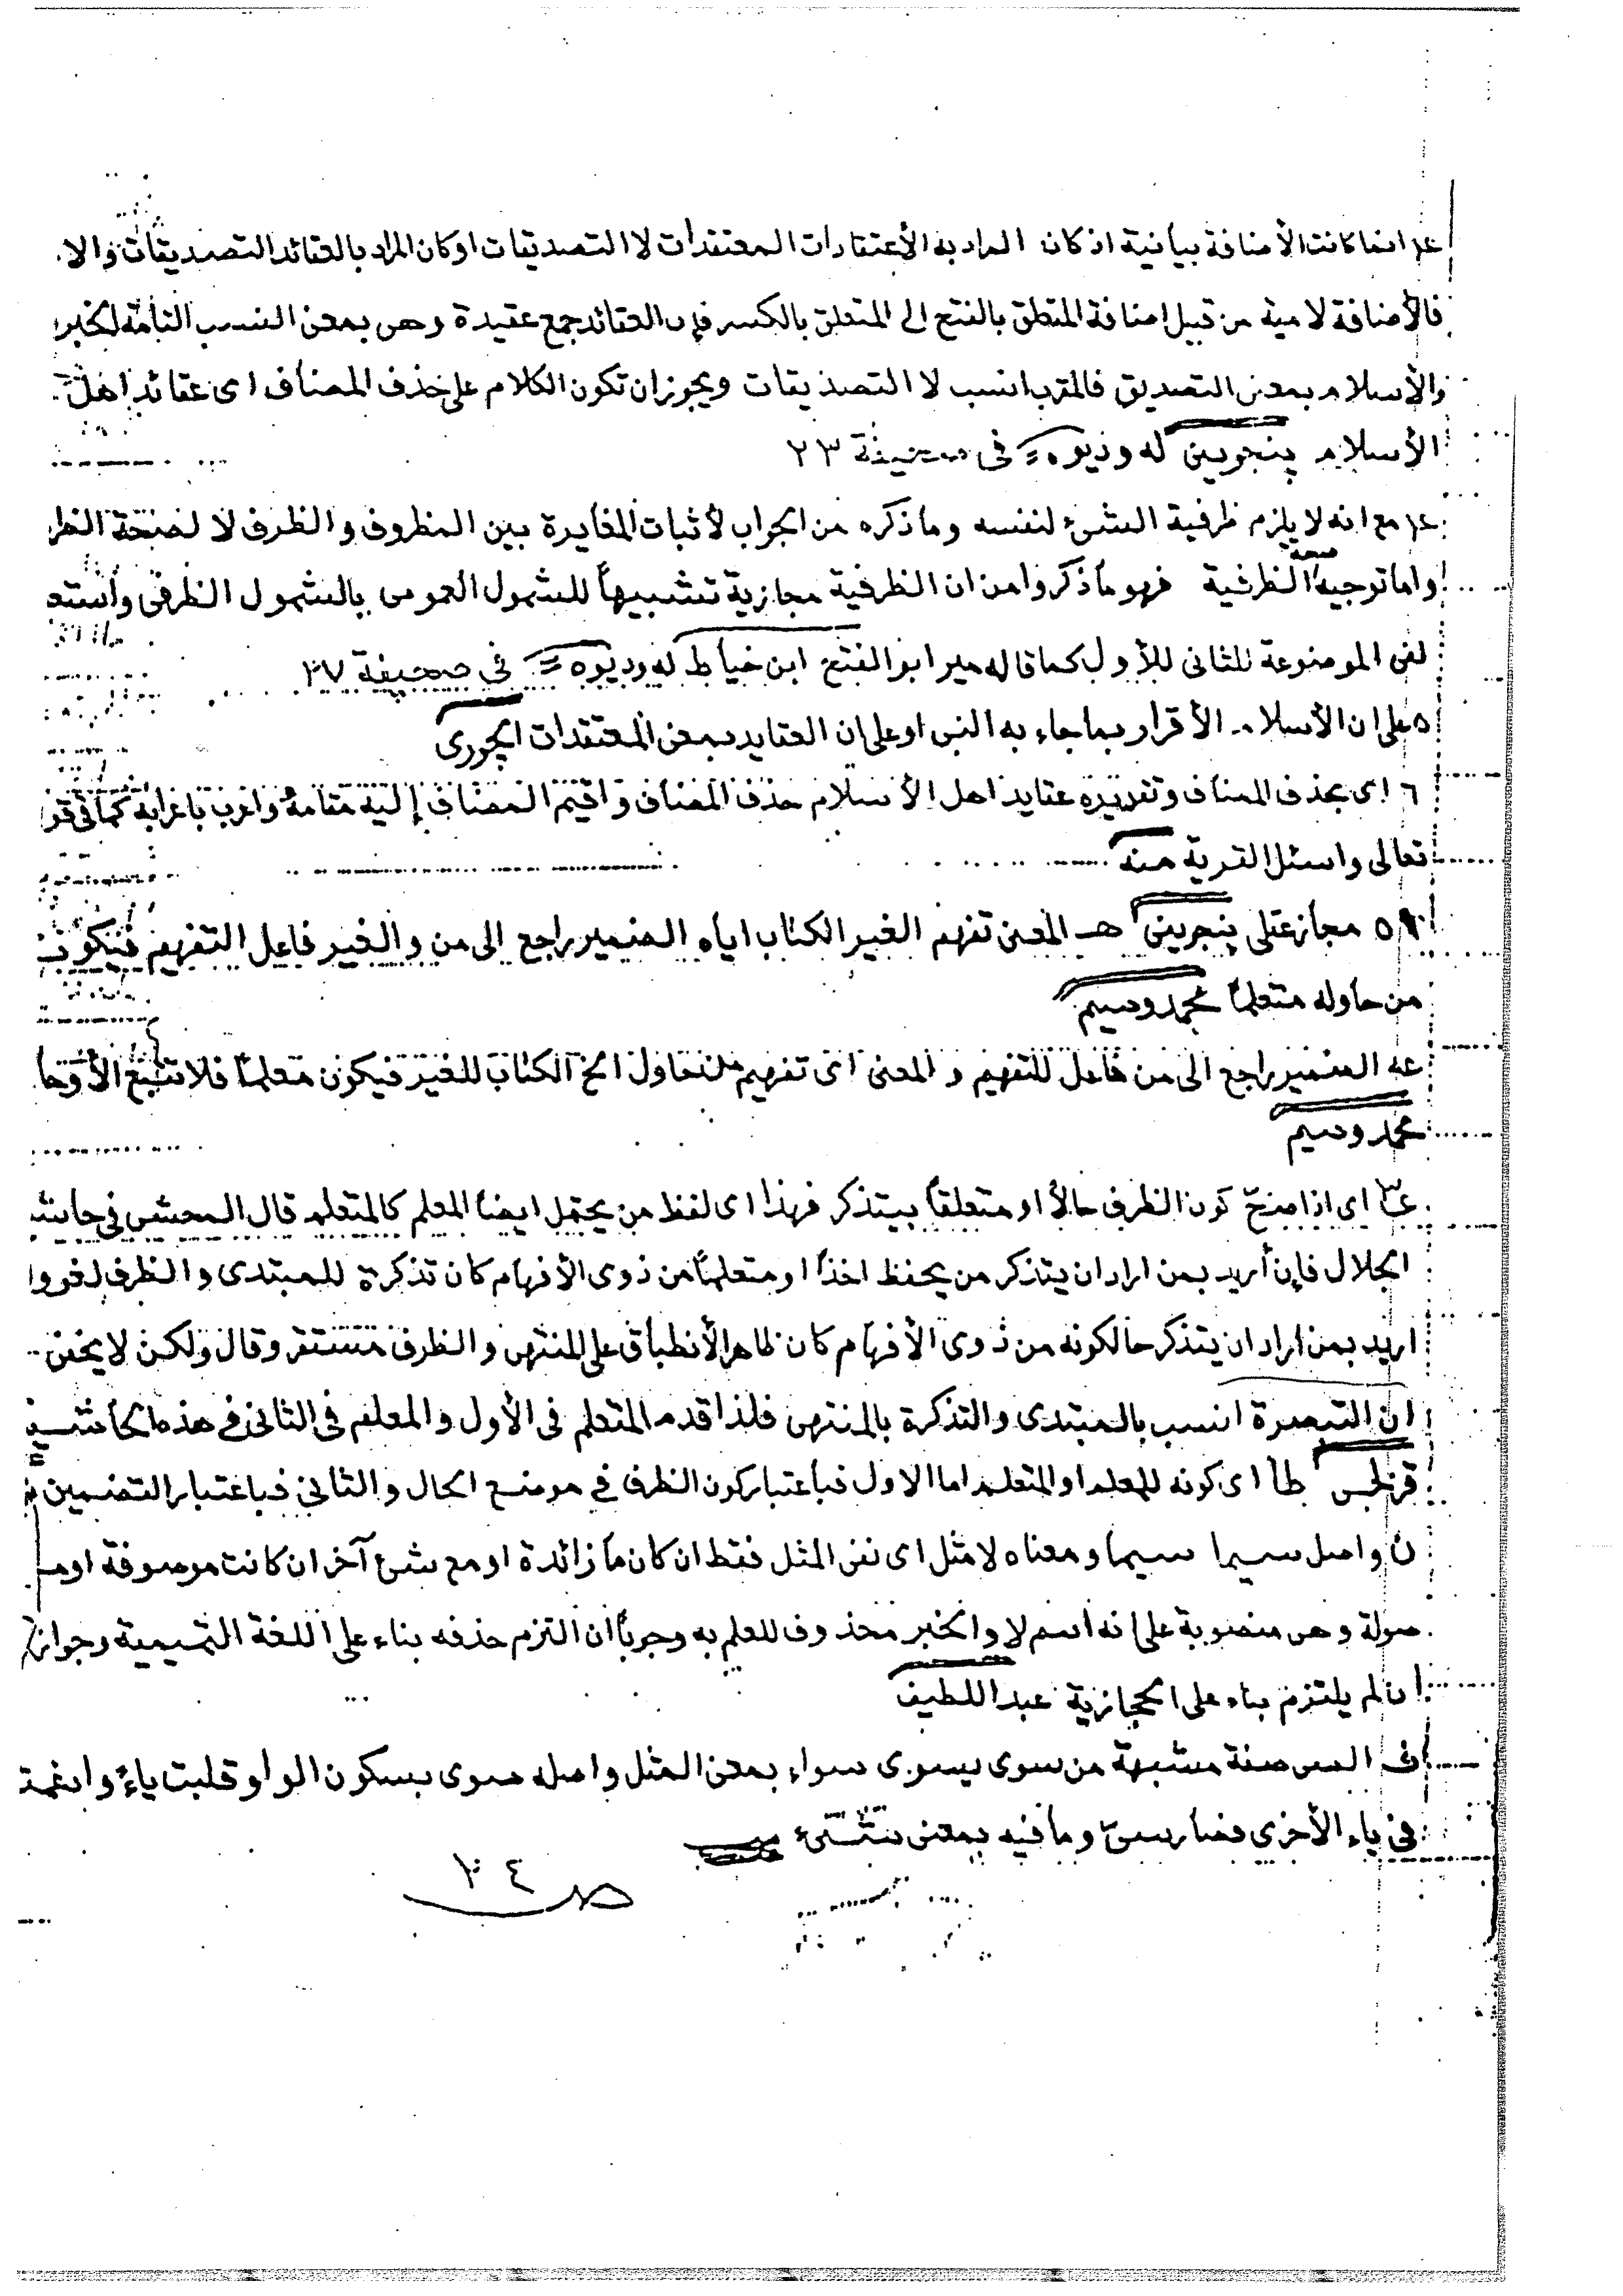 انما كانت الأضافة بيانية اذ كان المراد به الأعتقادات المعتقدات لا التصديقات او كان المراد بالعقائد التصديقات والا
فالأضافة لامية من قبيل اضافة المتعلق بالفتح الى المتعلق بالكسر فإن العقائد جمع عقيدة وهى بمعنى النسب التامة الخبر
والأسلام بمعنى التصديق فالمقرب انسب لا التصديقات ويجوز ان تكون الكلام على حذف المضاف اى عقائد اهل
الأسلام پنجوينى له وديوه = فى صحيفة ٢٣
مع انه لا يلزم ظرفية الشئ لنفسه وما ذكره من الجواب لأثبات المغايرة بين المظروف والظرف لا لصحة الظر
واما توجيه صحة الظرفية فهو ما ذكروا من ان الظرفية مجازية تشبيهاً للشمول العمومى بالشمول الظرفى واستعه
لفى الموضوعة للثانى للأول كما قاله مير ابو الفتح ابن خياط له وديوه = فى صحيفة ٢٧
٥ على ان الأسلام الأقرار بما جاء به النبى او على ان العقايد بمعنى المعتقدات الچورى
٦ اى بحذف المضاف وتقديره عقايد اهل الأسلام حذف المضاف واقيم المضاف إليه مقامه واعرب باعرابه كما فى قو
تعالى واسئل القرية منه
٥ مجاز عقلى پنجوينى هـ المعنى تفهم الغير الكتاب اياه الضمير راجع الى من والغير فاعل التفهيم فيكون
من حاوله متعلماً محمد وسيم
عه الضمير راجع الى من فاعل للتفهيم والمعنى اى تفهيم من حاول الخ الكتاب للغير فيكون معلماً فلا تتبع الأوها
محمد وسيم
اى اذا صح كون الظرف حالاً او متعلقاً بيتذكر فهذا اى لفظ من يحتمل ايضاً المعلم كالمتعلم قال المحشى فى حاشية
الجلال فإن أريد بمن اراد ان يتذكر من يحفظ اخذاً او متعلماً من ذوى الأفهام كان تذكرة للمبتدى والظرف لغو وا
اريد بمن اراد ان يتذكر حالكونه من ذوى الأفهام كان ظاهر الأنطباق على المنتهى والظرف مستقر وقال ولكن لا يخفى
ان التبصرة انسب بالمبتدى والتذكرة بالمنتهى فلذا قدم المتعلم فى الأول والمعلم فى الثانى فى هذه الحاشية
قزلجى طا اى كونه للمعلم او المتعلم اما الاول فباعتبار كون الظرف فى موضع الحال والثانى فباعتبار التضمين
ن واصل سيما سيما ومعناه لا مثل اى نفى المثل فقط ان كان ما زائدة او مع شئ آخر ان كانت موصوفة او مو
صولة وهى منصوبة على انه اسم لا والخبر محذوف للعلم به وجوباً ان التزم حذفه بناء على اللغة التميمية وجوازاً
ان لم يلتزم بناء على الحجازية عبد اللطيف
ف السى صفة مشبهة من سوى يسوى سواء بمعنى المثل واصله سوى بسكون الواو قلبت ياءً وادغمت
فى ياء الأخرى فصار سىّ وما فيه بمعنى شئ
صـ ٢٤